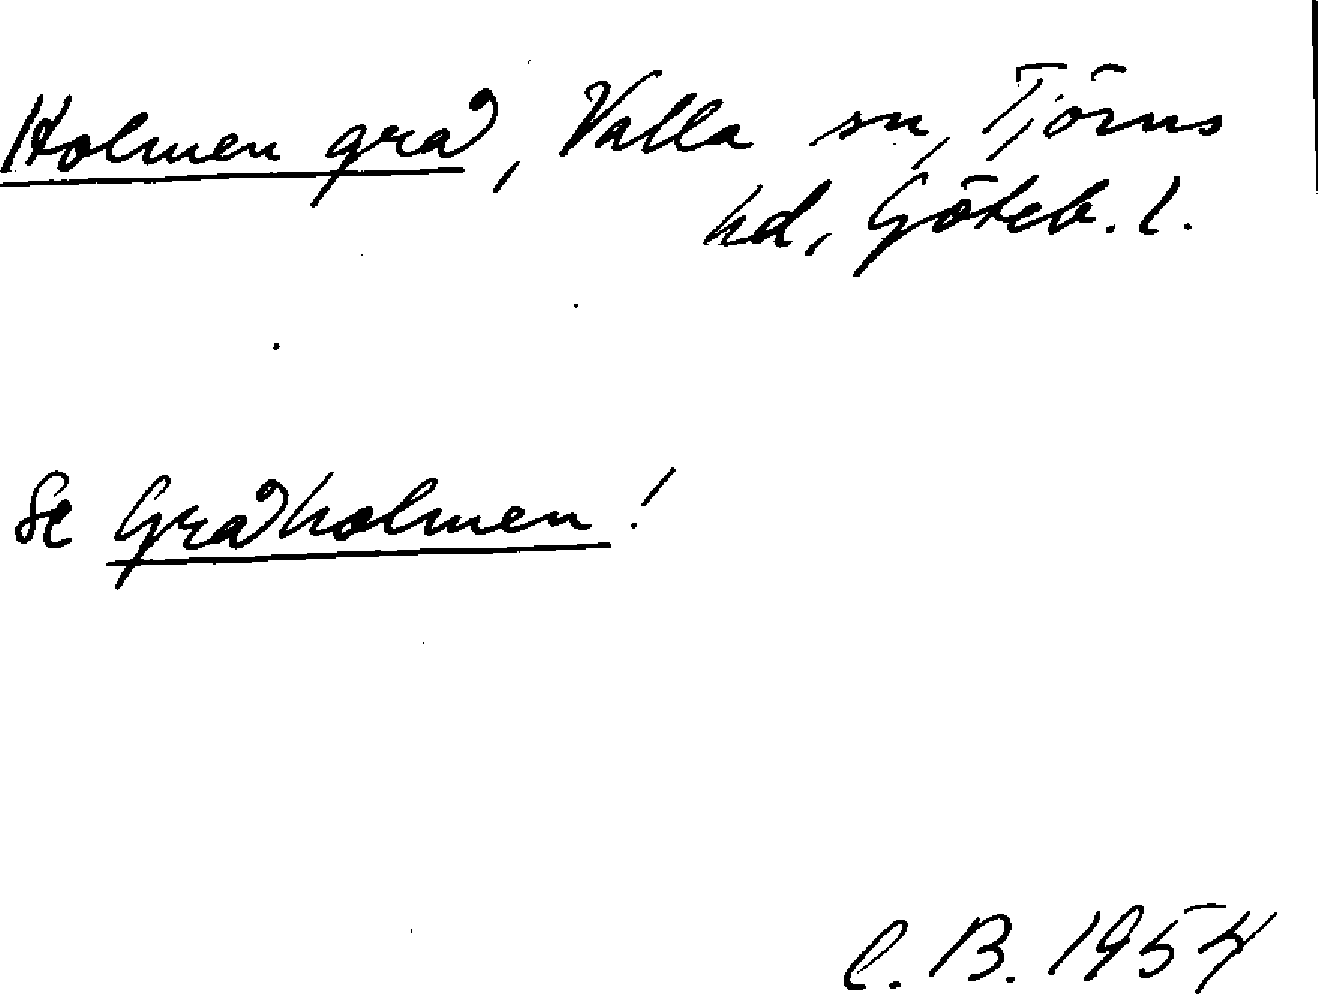 Holmen grå, Valla sn, Tjörns
hd, Göteb. l.
Se Gråholmen!
C. B. 1954